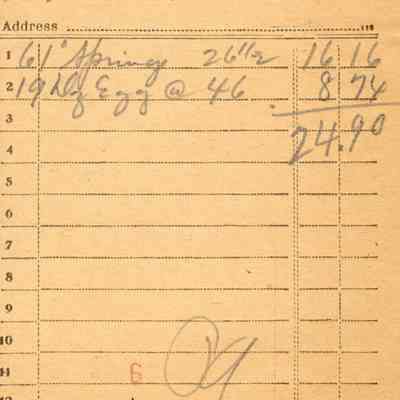 Address
1 61# Springs 26 1/2 16 16
2 19 Dz Egg @ 46 8 74
3
24.90
4
5
6
7
8
9
10
11 6